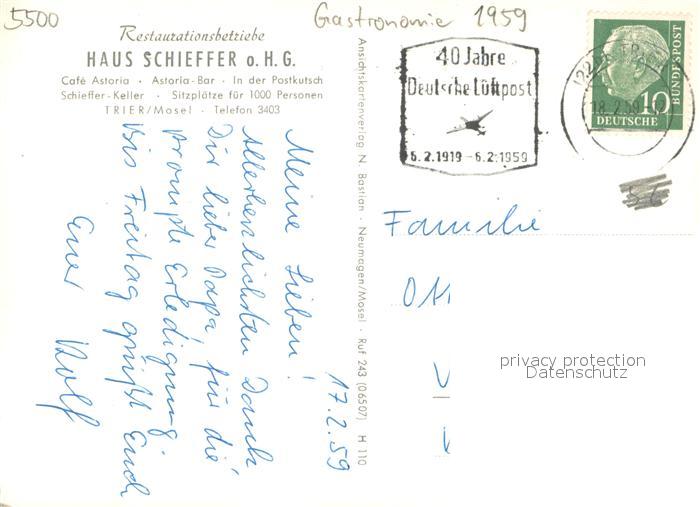 5500
Gastronomie 1959
Restaurationsbetriebe
HAUS SCHIEFFER o. H. G.
Café Astoria · Astoria-Bar · In der Postkutsch
Schieffer-Keller · Sitzplätze für 1000 Personen
TRIER/Mosel · Telefon 3403
17.2.59
Meine Lieben!
Allerherzlichsten Dank
Dir lieber Papa für die
prompte Erledigung.
Bis Freitag grüßt Euch
Euer Rolf
Ansichtskartenverlag N. Bastian · Neumagen/Mosel · Ruf 243 (06507) H 110
40 Jahre
Deutsche Luftpost
6.2.1919 - 6.2.1959
18.2.59
DEUTSCHE
BUNDESPOST
10
Familie
privacy protection
Datenschutz